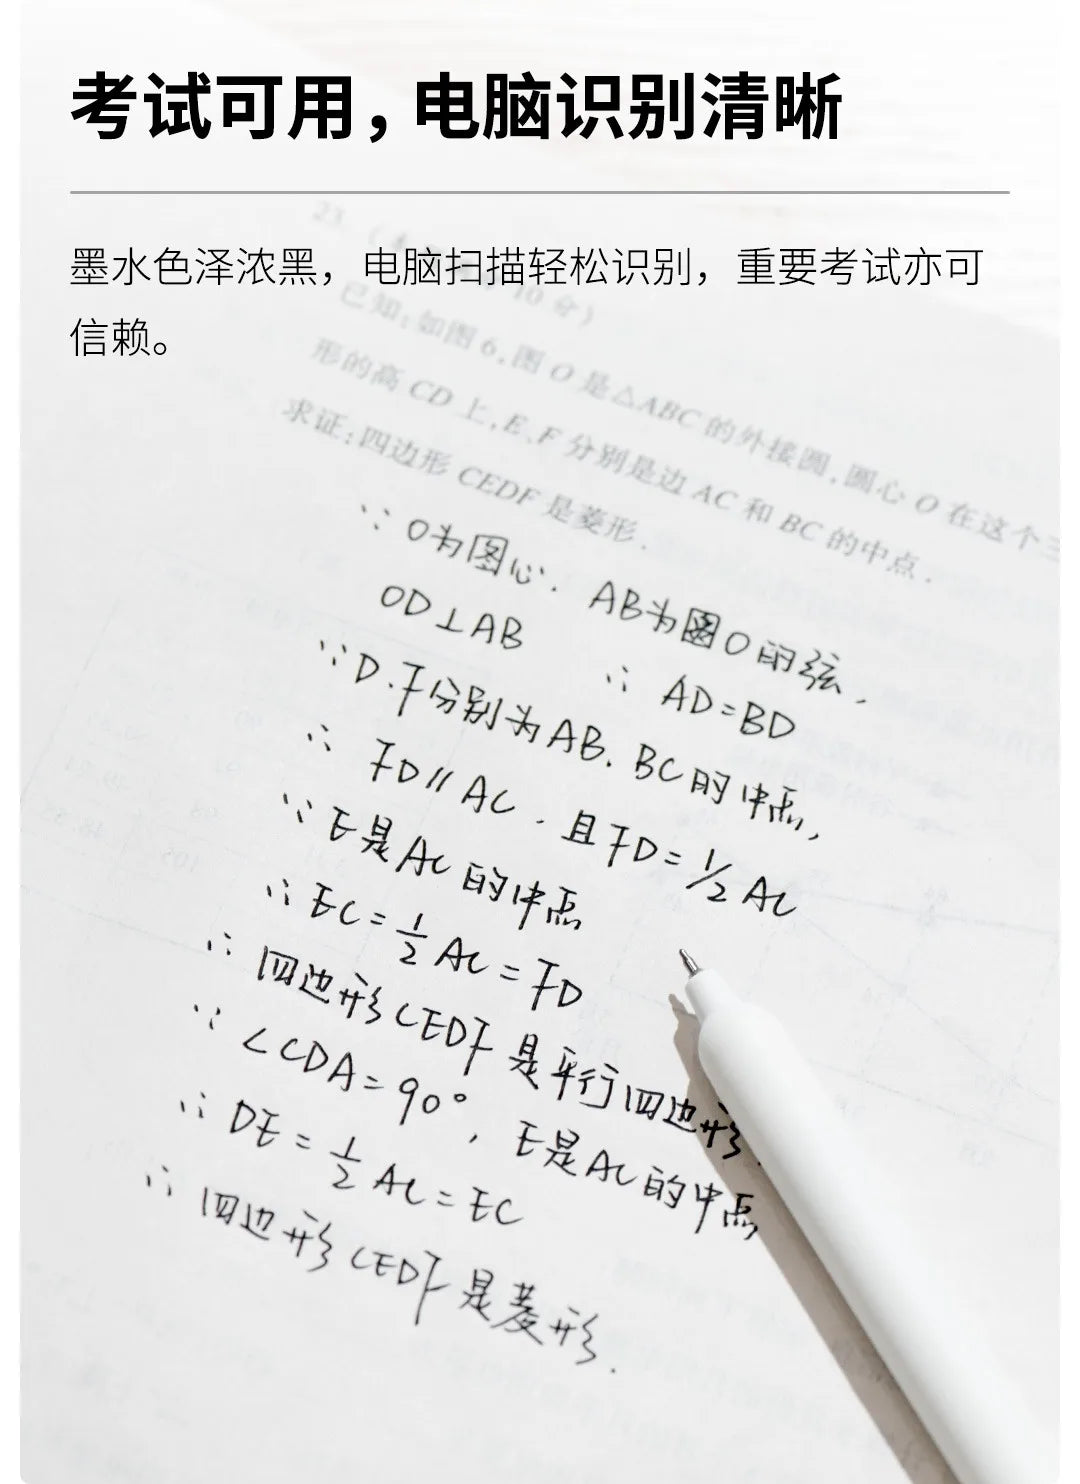 考试可用，电脑识别清晰
墨水色泽浓黑，电脑扫描轻松识别，重要考试亦可
信赖。
23.
10 分）
已知：如图 6，圆 O 是△ABC 的外接圆，圆心 O 在这个三
形的高 CD 上，E、F 分别是边 AC 和 BC 的中点．
求证：四边形 CEDF 是菱形．
∵ O为圆心. AB为圆O的弦.
OD⊥AB ∴ AD=BD
∵D.F分别为AB.BC的中点,
∴ FD∥AC. 且FD=1/2AC
∵E是AC的中点
∴EC=1/2AC=FD
∴四边形CEDF是平行四边形.
∵ ∠CDA=90°, E是AC的中点
∴DE=1/2AC=EC
∴四边形CEDF是菱形.